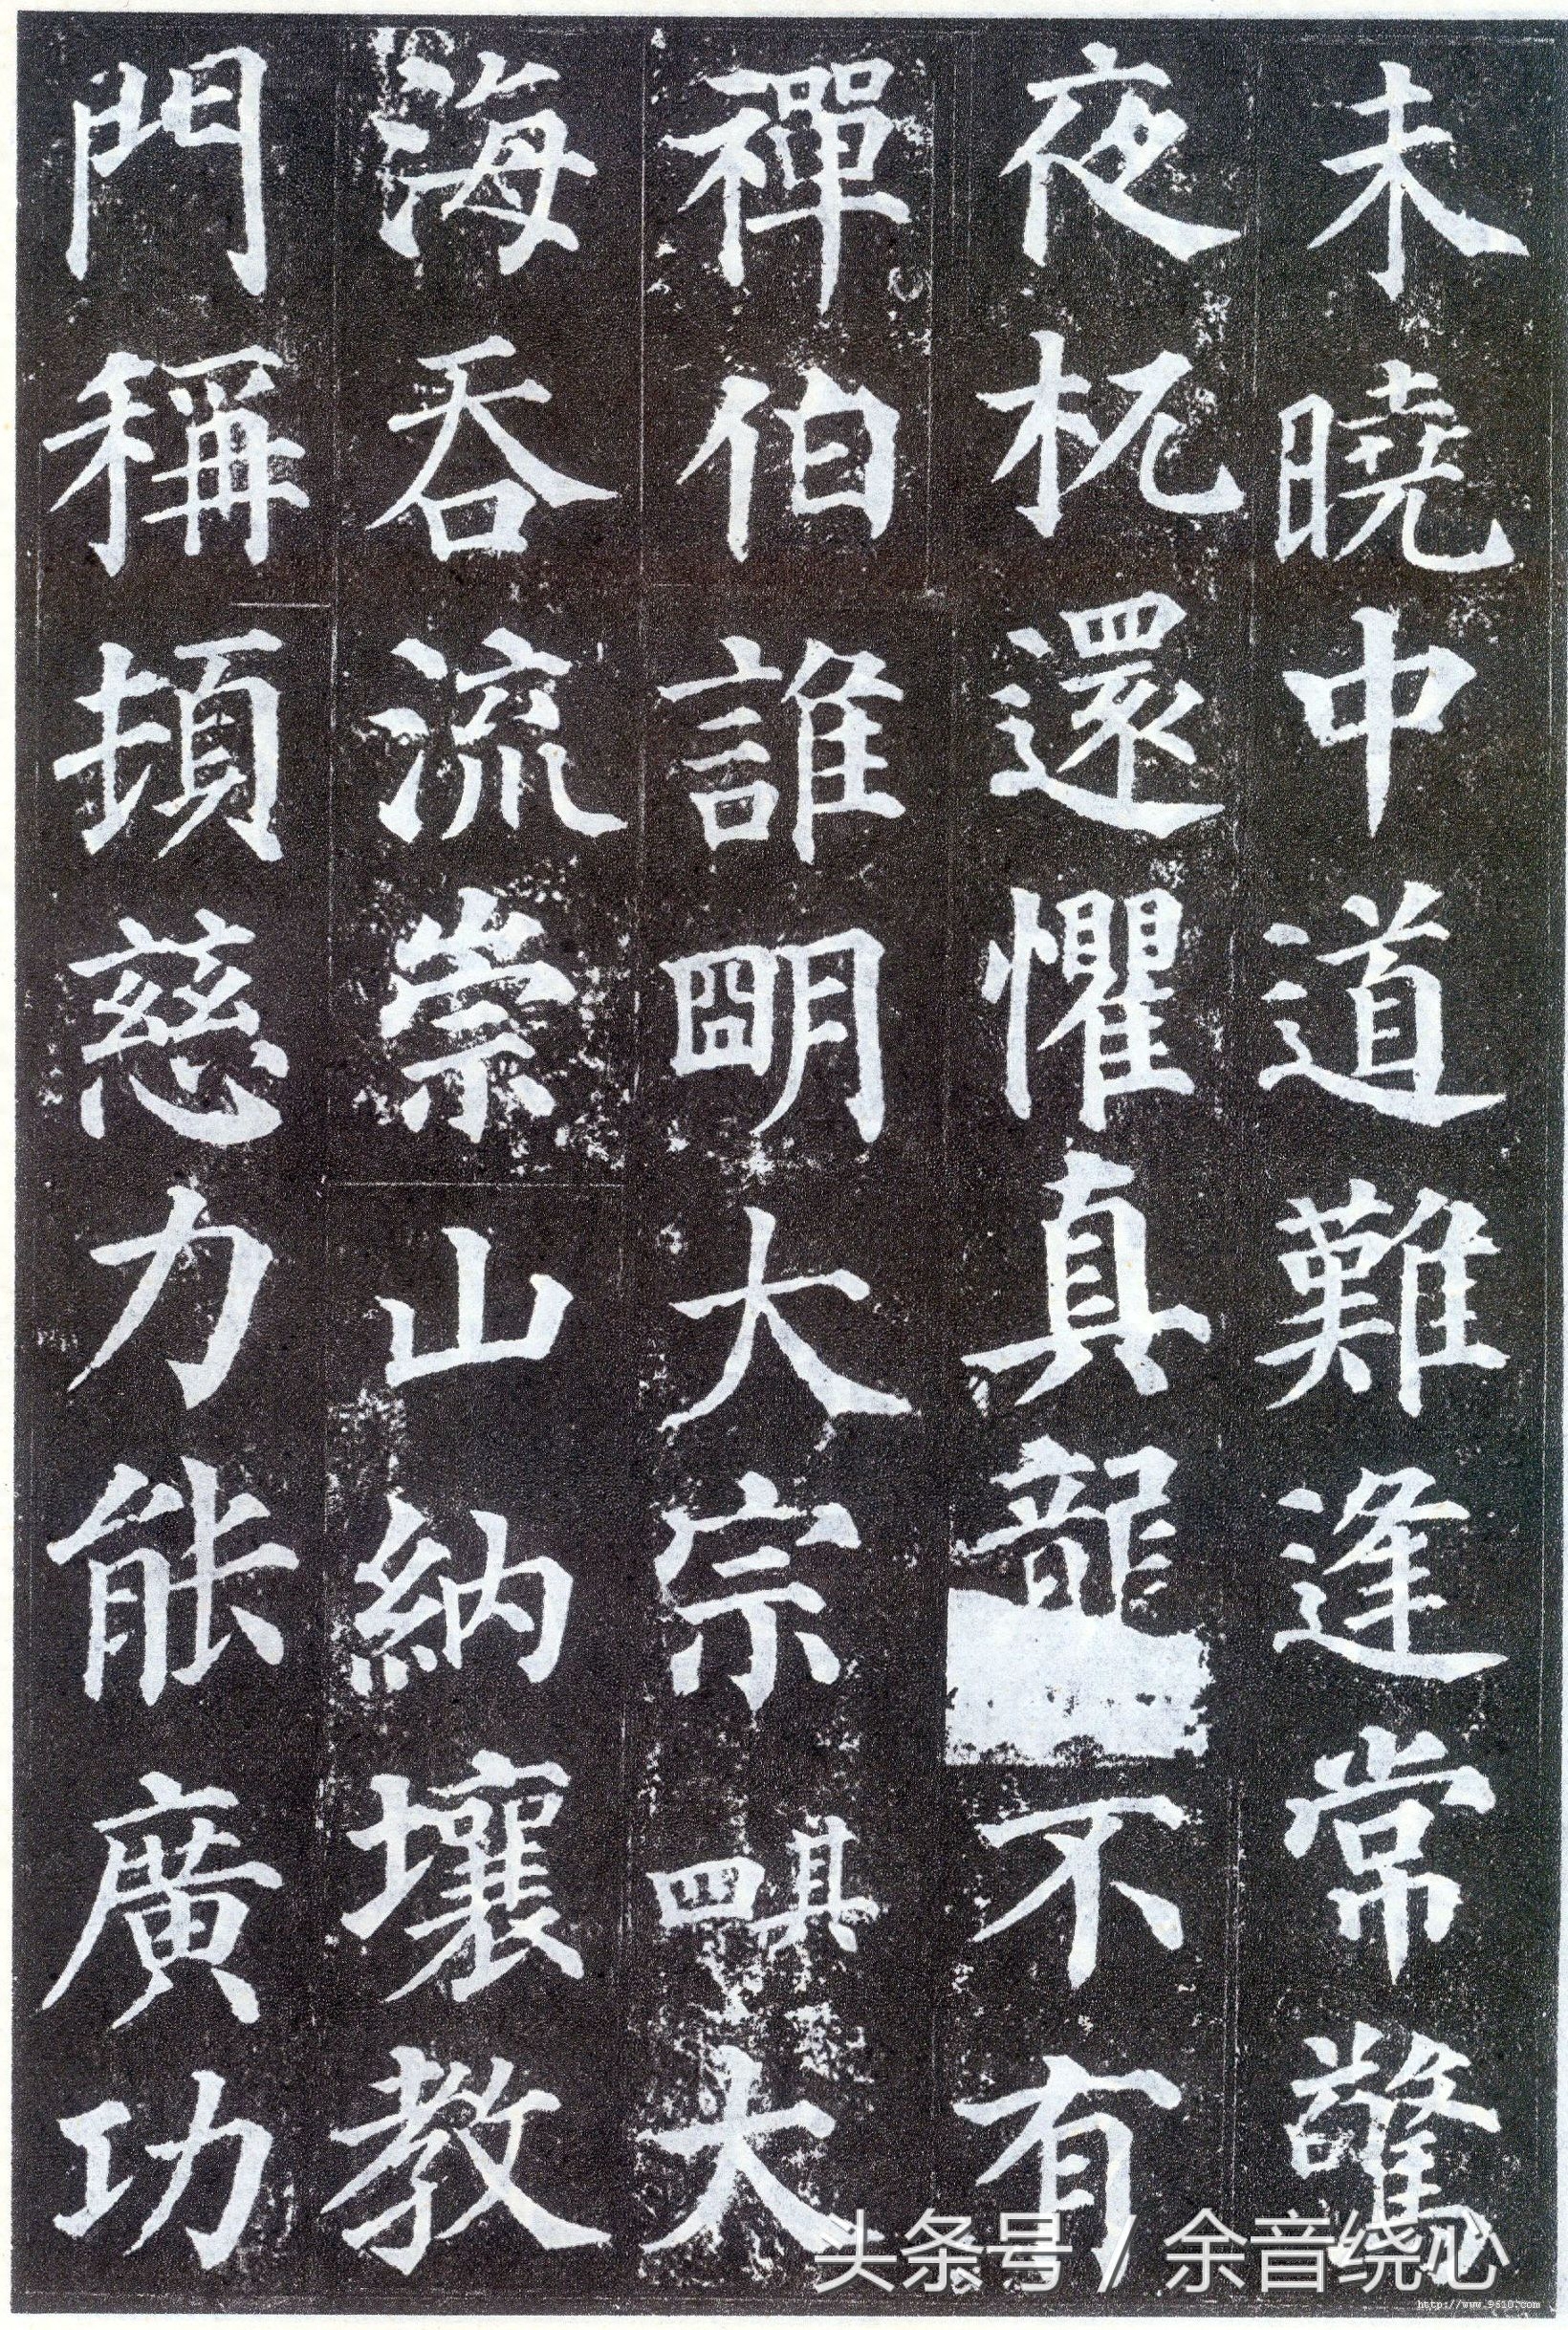 未曉中道難逢常驚
夜杌還懼真龍不有
禪伯誰明大宗其四大
海吞流崇山納壤教
門稱頓慈力能廣功
头条号 / 余音绕心
http://www.9610.com